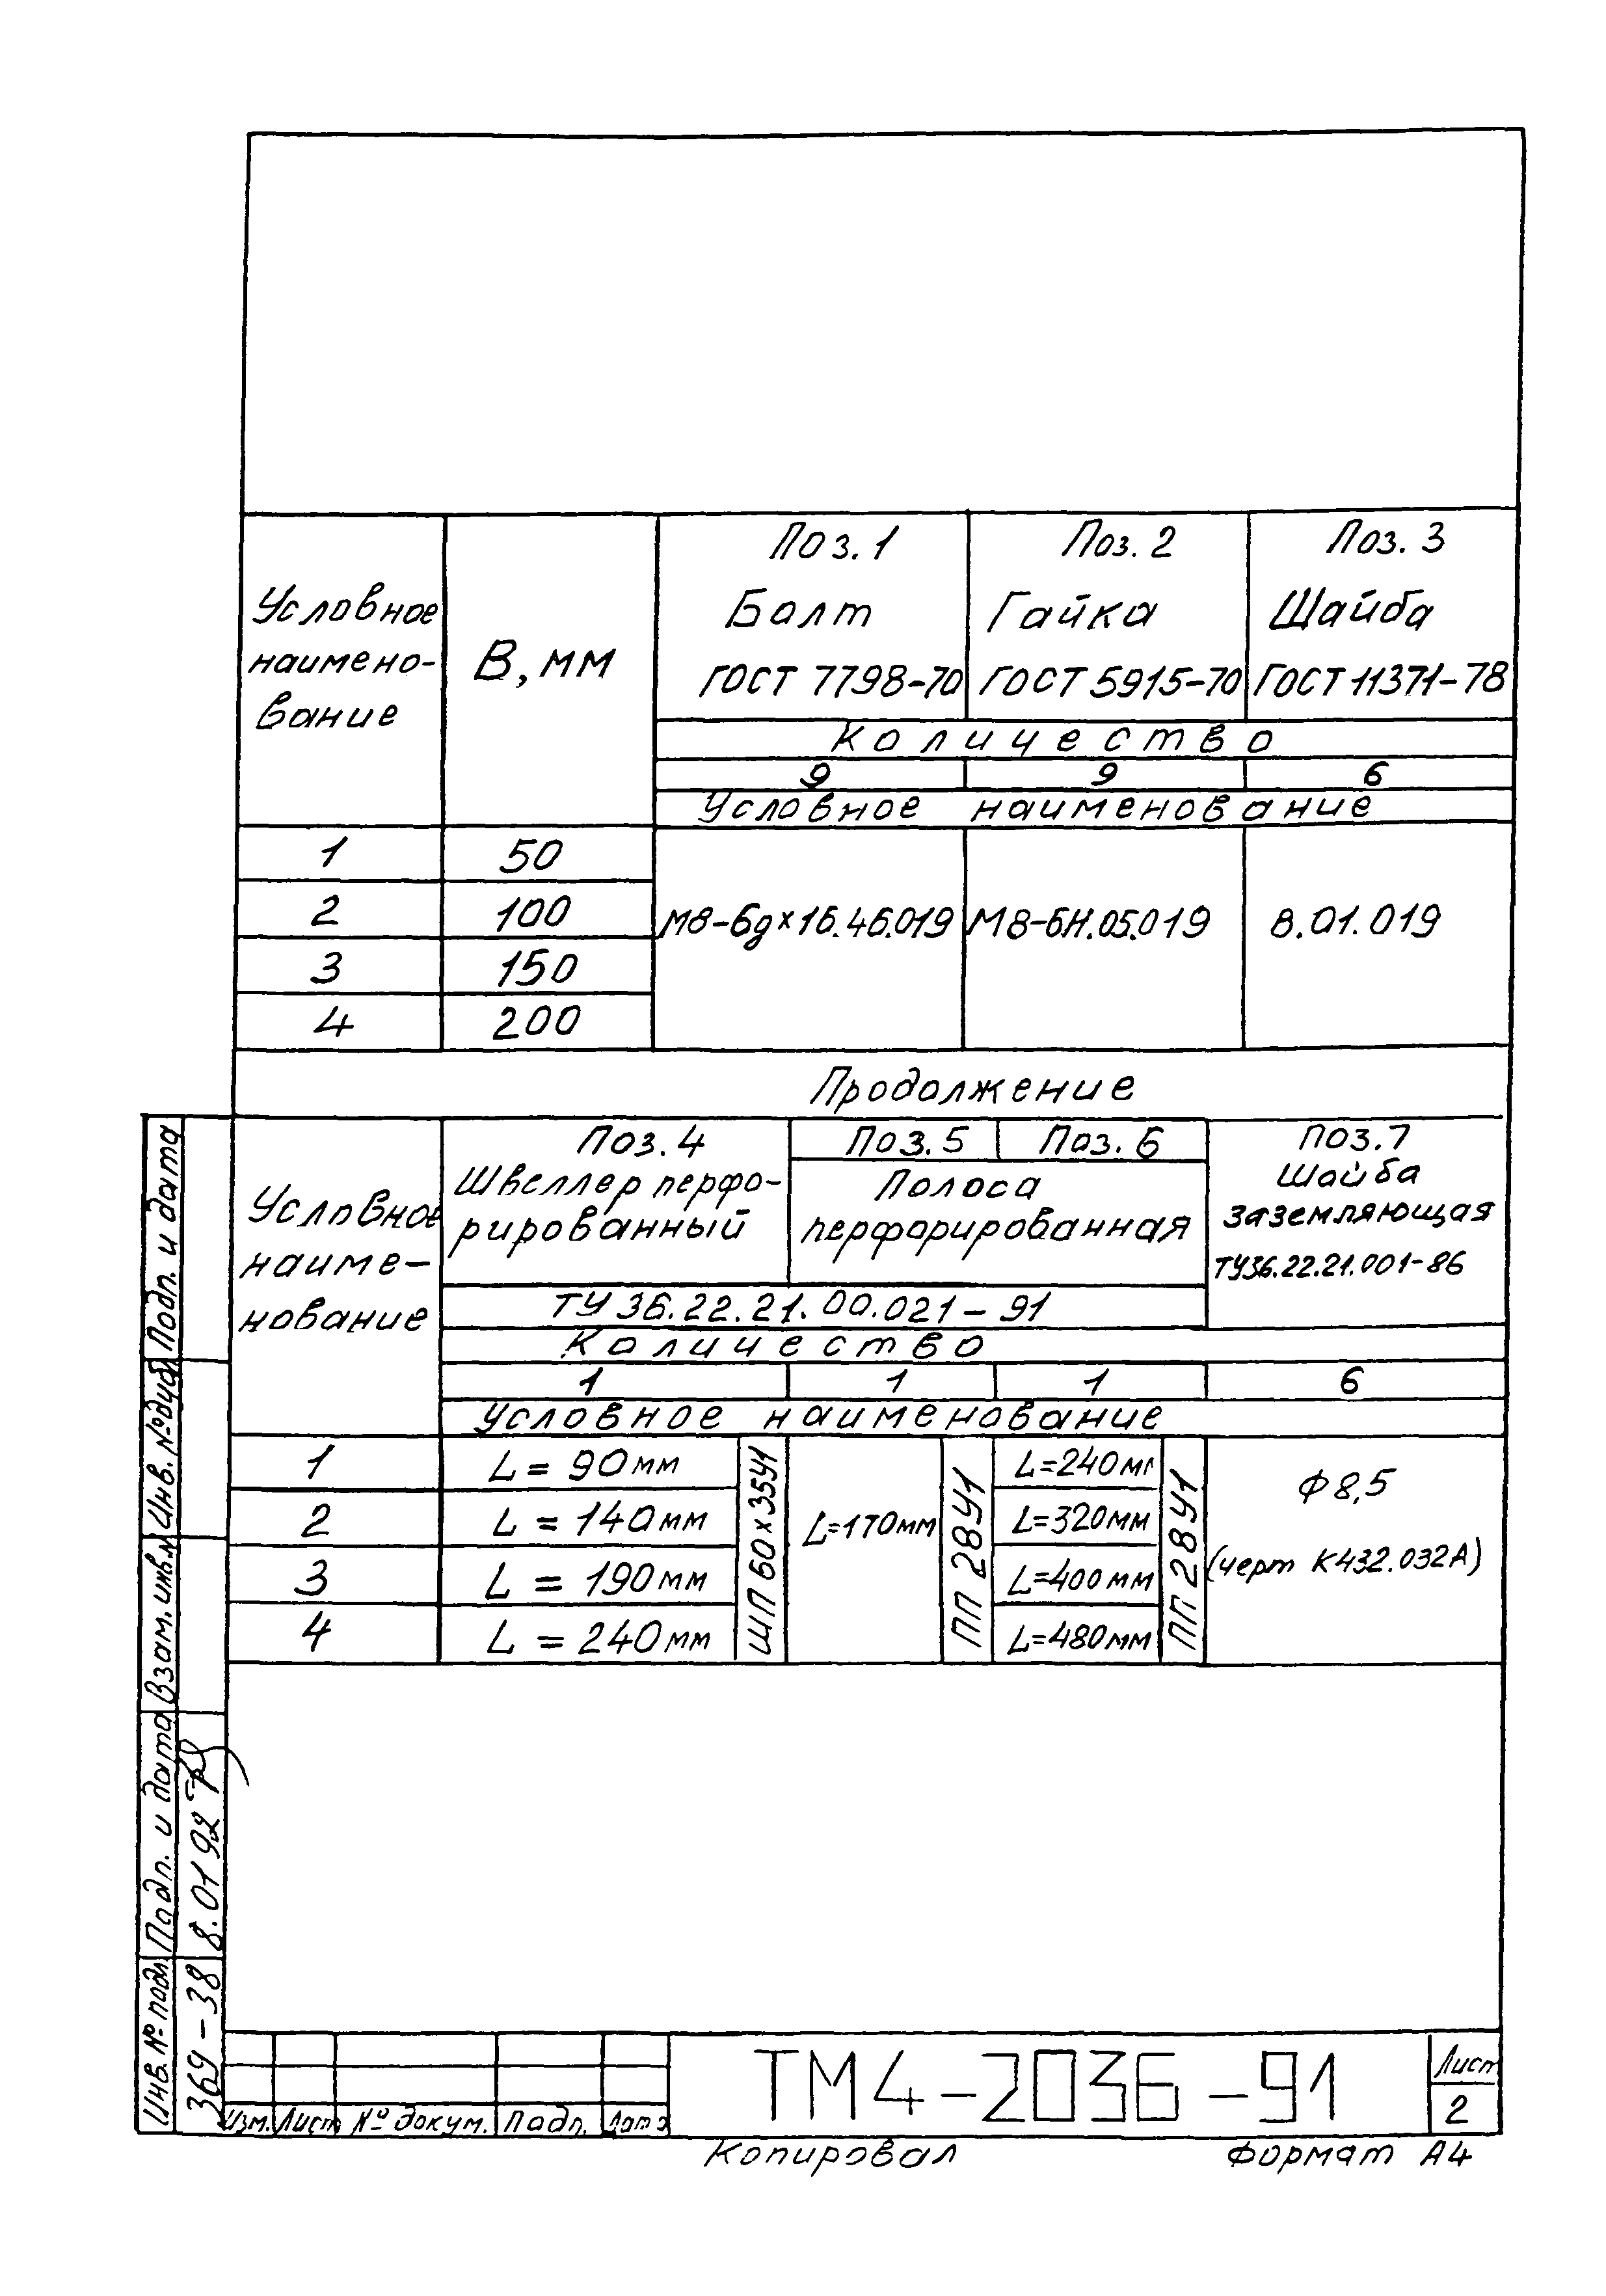 Поз.1 Поз.2 Поз.3
Условное наимено-вание В, мм Болт Гайка Шайба
ГОСТ 7798-70 ГОСТ 5915-70 ГОСТ 11371-78
Количество
9 9 6
Условное наименование
1 50
2 100 М8-6g×16.46.019 М8-6Н.05.019 8.01.019
3 150
4 200
Продолжение
Поз.4 Поз.5 Поз.6 Поз.7
Условное наиме-нование Швеллер перфо-рированный Полоса перфорированная Шайба заземляющая
ТУ36.22.21.001-86
ТУ 36.22.21.00.021-91
Количество
1 1 1 6
Условное наименование
1 L = 90мм ШП 60×35У1 L=170мм ПП 28У1 L=240мм ПП 28У1 Ф 8,5
2 L = 140мм L=320мм (черт К432.032А)
3 L = 190мм L=400мм
4 L = 240мм L=480мм
Подп. и дата
Инв. № дубл
Взам. инв.№
Подп. и дата 8.01 92
Инв. № подл. 369-38
Изм. Лист № докум. Подп. Дата
ТМ4-2036-91
Лист
2
Копировал Формат А4